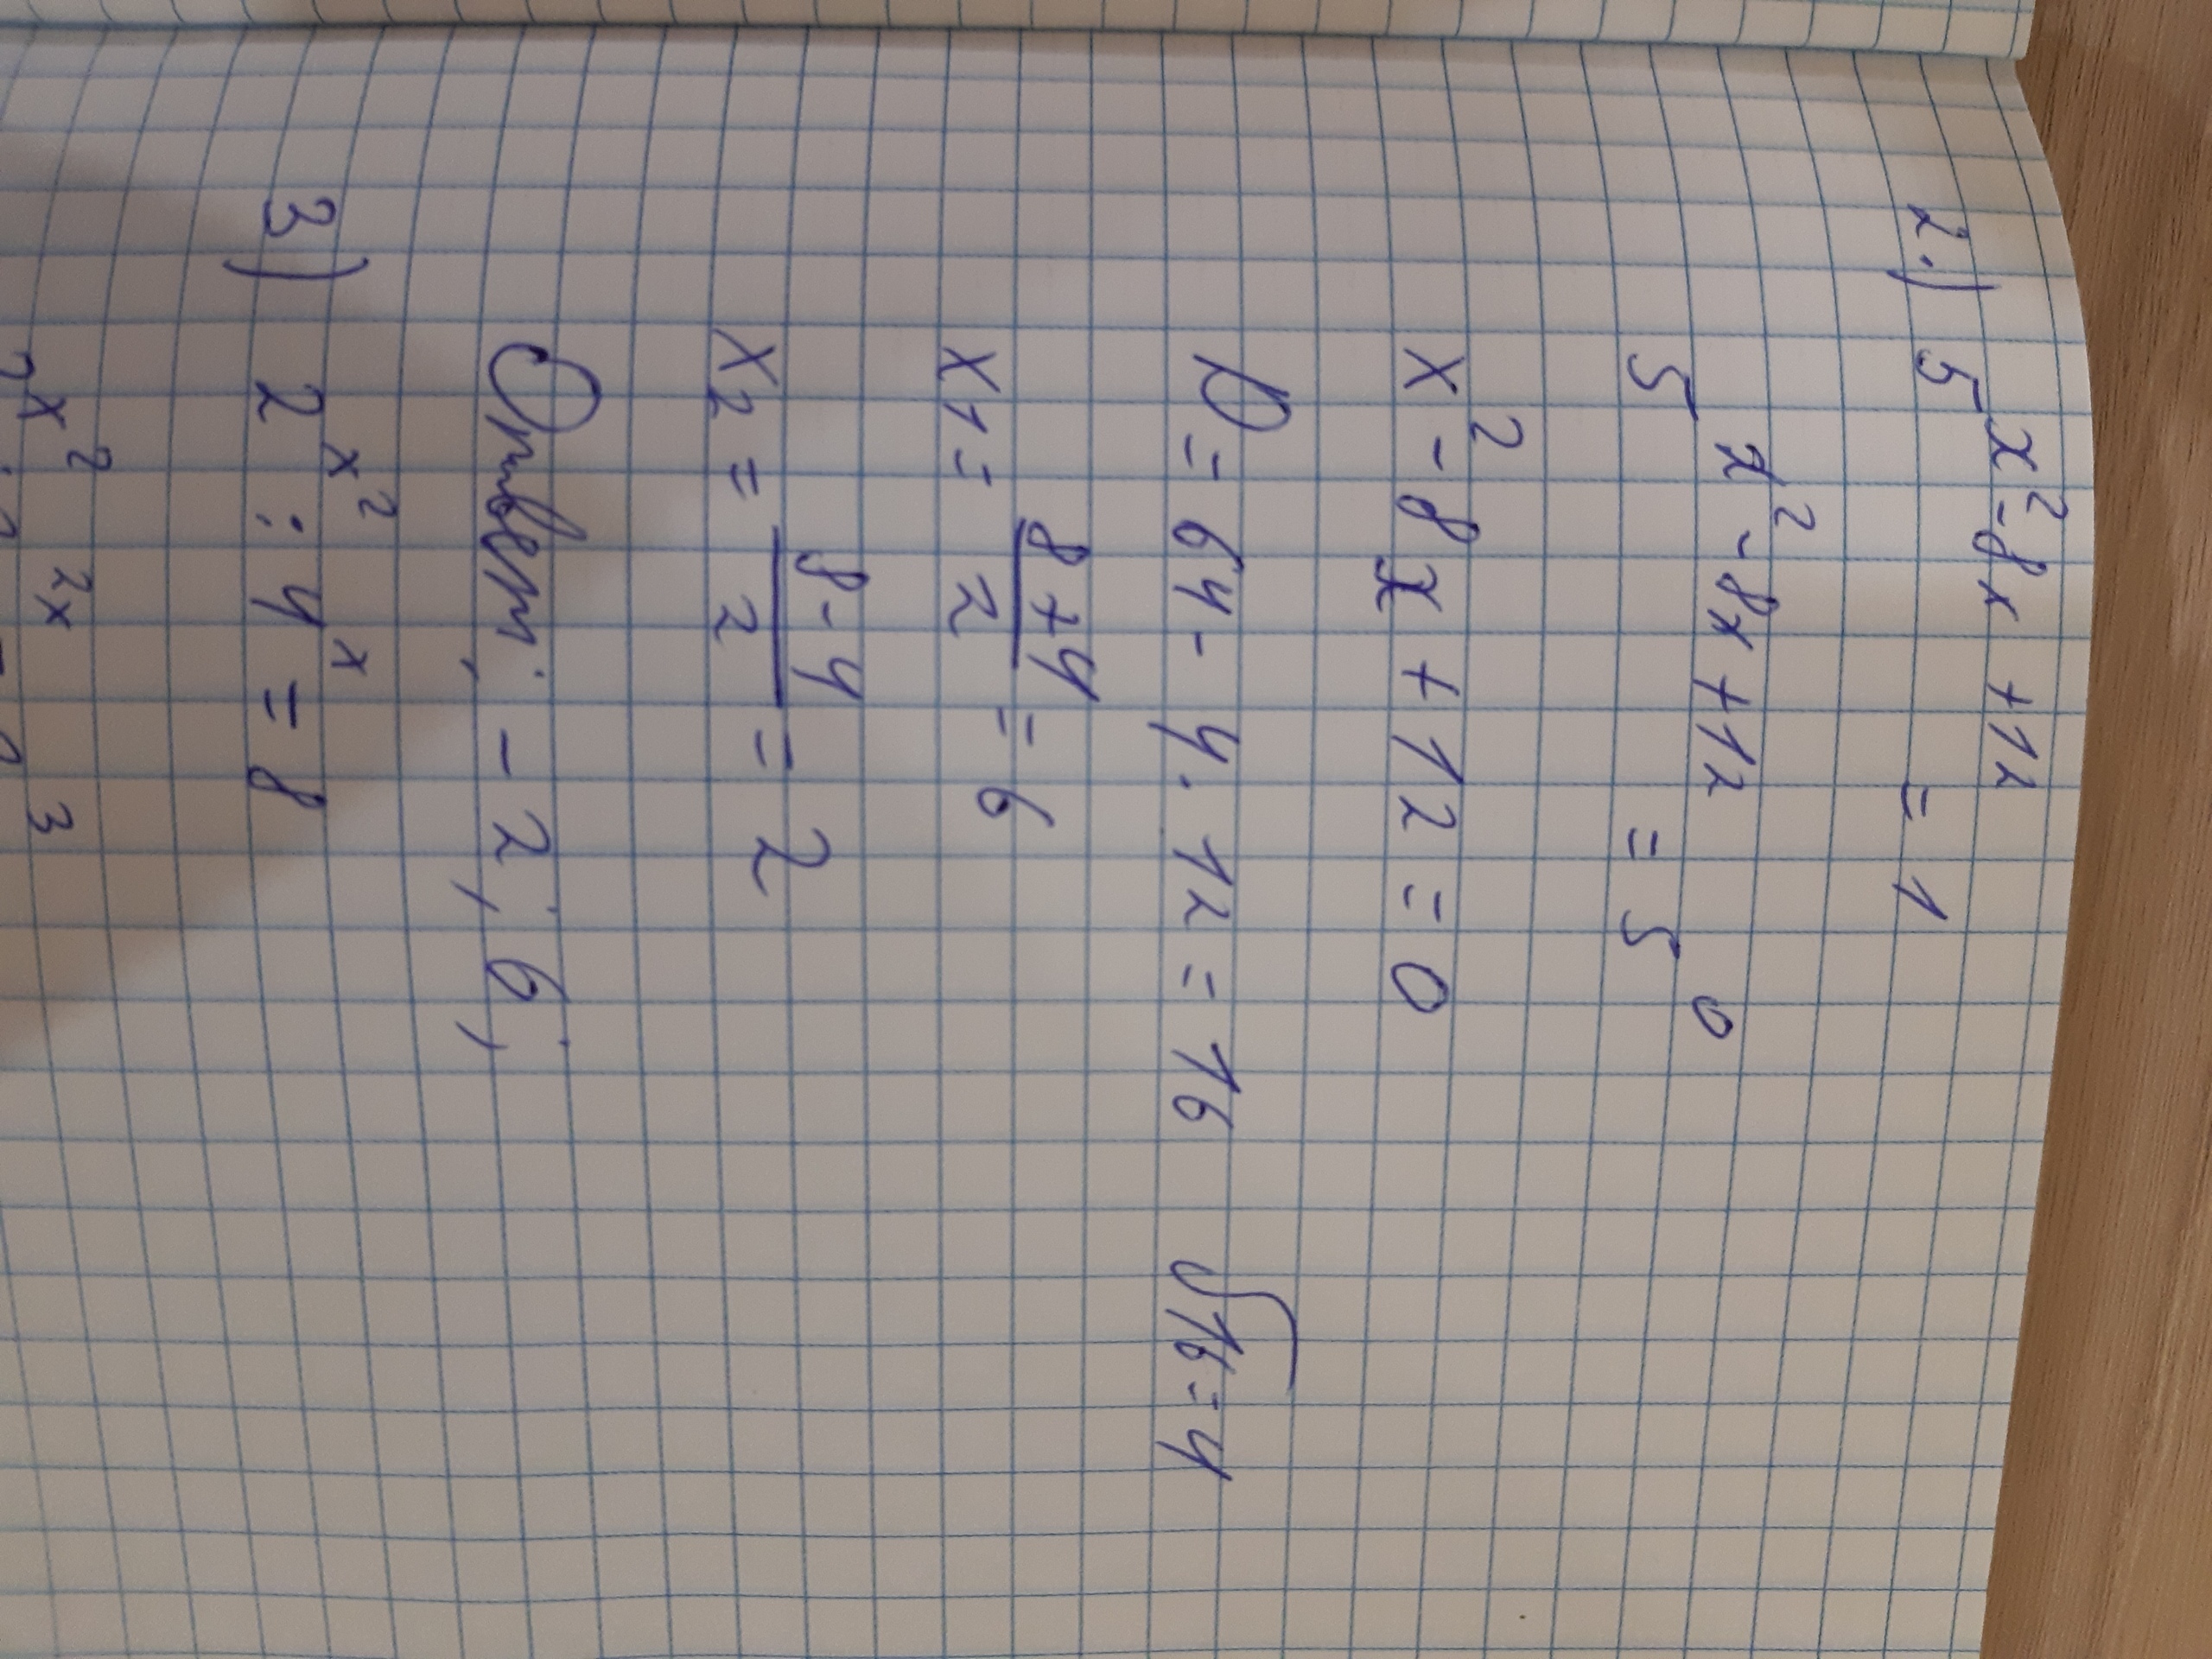 2.) 5^{x²-8x+12} = 1
5^{x²-8x+12} = 5^0
x²-8x+12=0
D=64-4·12=16 √16=4
x1=\frac{8+4}{2}=6
x2=\frac{8-4}{2}=2
Ответ: -2; 6;
3) 2^{x²} : 4^x = 8